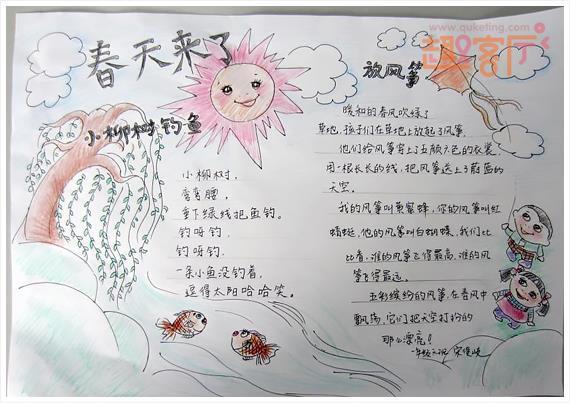 www.quketing.com
趣客厅
春天来了
小柳树钓鱼
小柳树,
弯弯腰,
垂下绿线把鱼钓。
钓呀钓,
钓呀钓,
一条小鱼没钓着,
逗得太阳哈哈笑。
放风筝
暖和的春风吹绿了
草地,孩子们在草地上放起了风筝。
他们给风筝穿上了五颜六色的衣裳,
用一根长长的线,把风筝送上了蔚蓝的
天空。
我的风筝叫黄蜜蜂,你的风筝叫红
蜻蜓,他的风筝叫白蝴蝶,我们比
比看,谁的风筝飞得最高,谁的风
筝飞得最远。
五彩缤纷的风筝,在春风中
飘荡,它们把天空打扮的
那么漂亮!